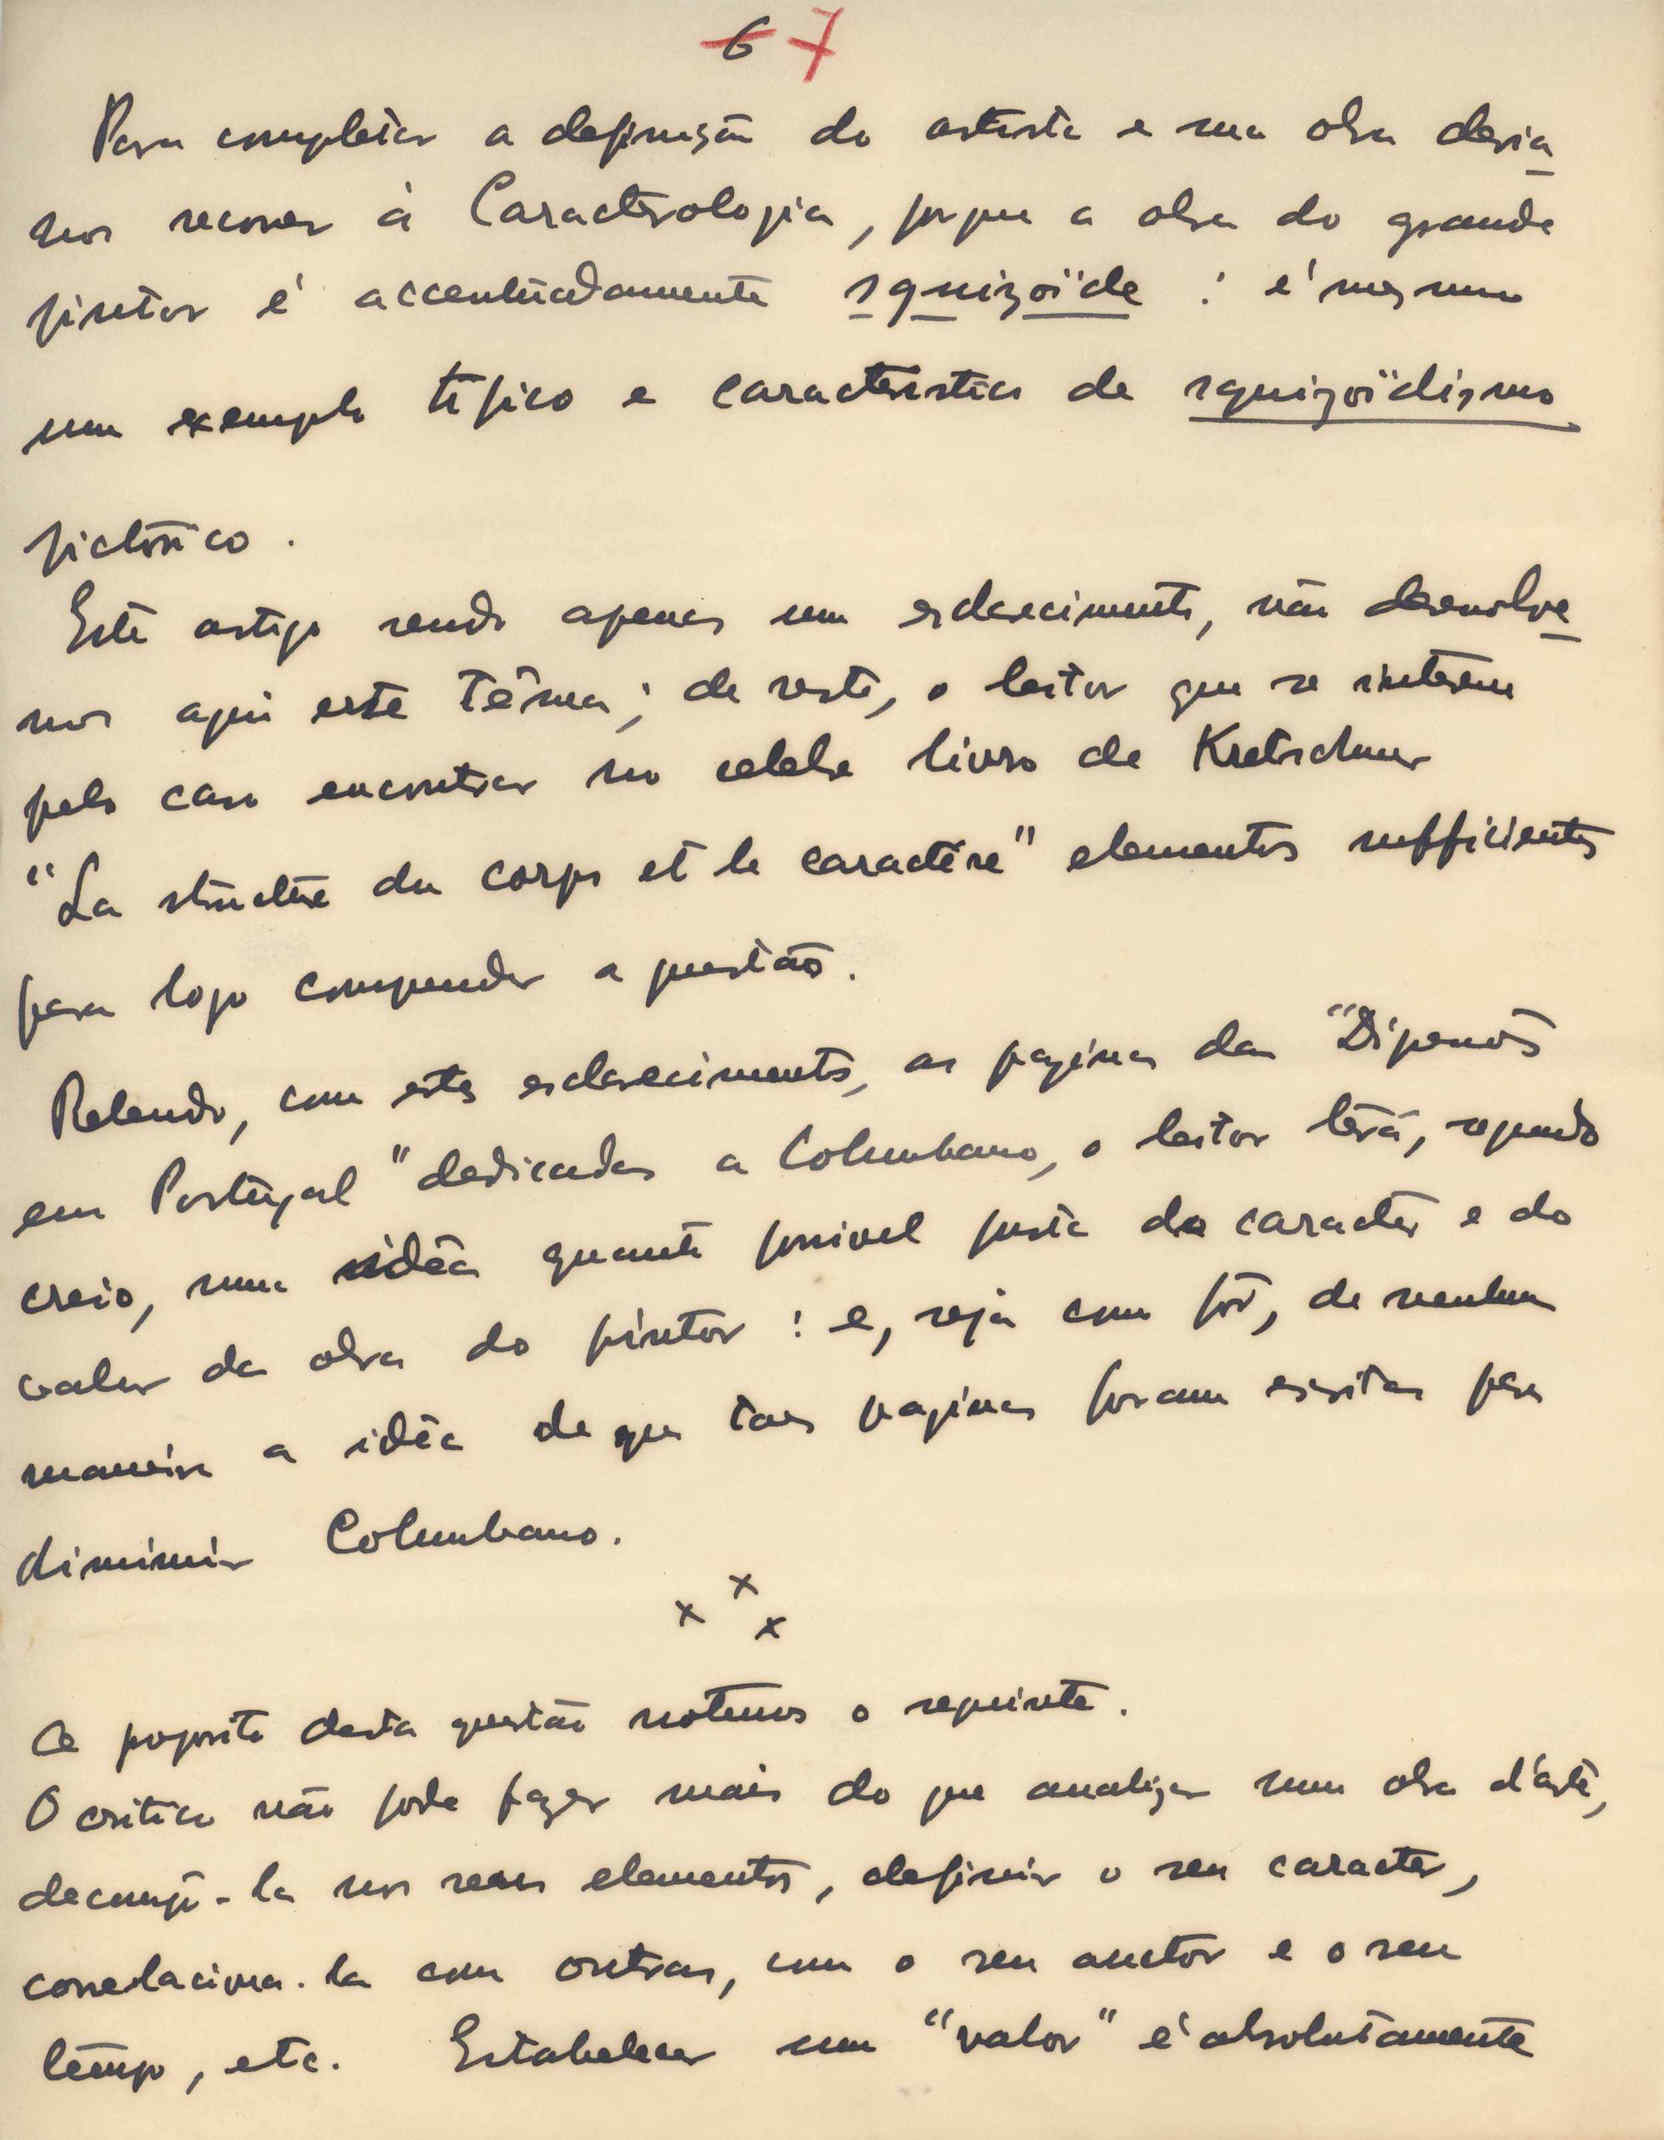 6 7
Para completar a definição do artista e sua obra devia
mos recorrer á Caracterologia, porque a obra do grande
pintor é accentuadamente squizoïde: é mesmo
um exemplo tipico e caracteristico de squizoïdismo
pictórico.
Este artigo sendo apenas um esclarecimento, não desenvolve
mos aqui este têma; de resto, o leitor que se interesse
pelo caso encontrar no celebre livro de Kretschmer
"La structure du corps et le caractère" elementos sufficientes
para logo comprender a questão.
Relendo, com estes esclarecimentos, as paginas das
em Portugal" dedicadas a Columbano, o leitor terá, segundo
creio, uma idéa quanto possivel justa do caracter e do
valor da obra do pintor: e, seja como fôr, de nenhuma
maneira a idéa de que taes paginas foram escritas para
diminuir Columbano.
x x x
A proposito desta questão notemos o seguinte.
O critico não pode fazer mais do que analizar uma obra d'arte,
decompô-la nos seus elementos, definir o seu caracter,
correlaciona-la com outras, com o seu auctor e o seu
tempo, etc. Estabelecer um "valor" é absolutamente